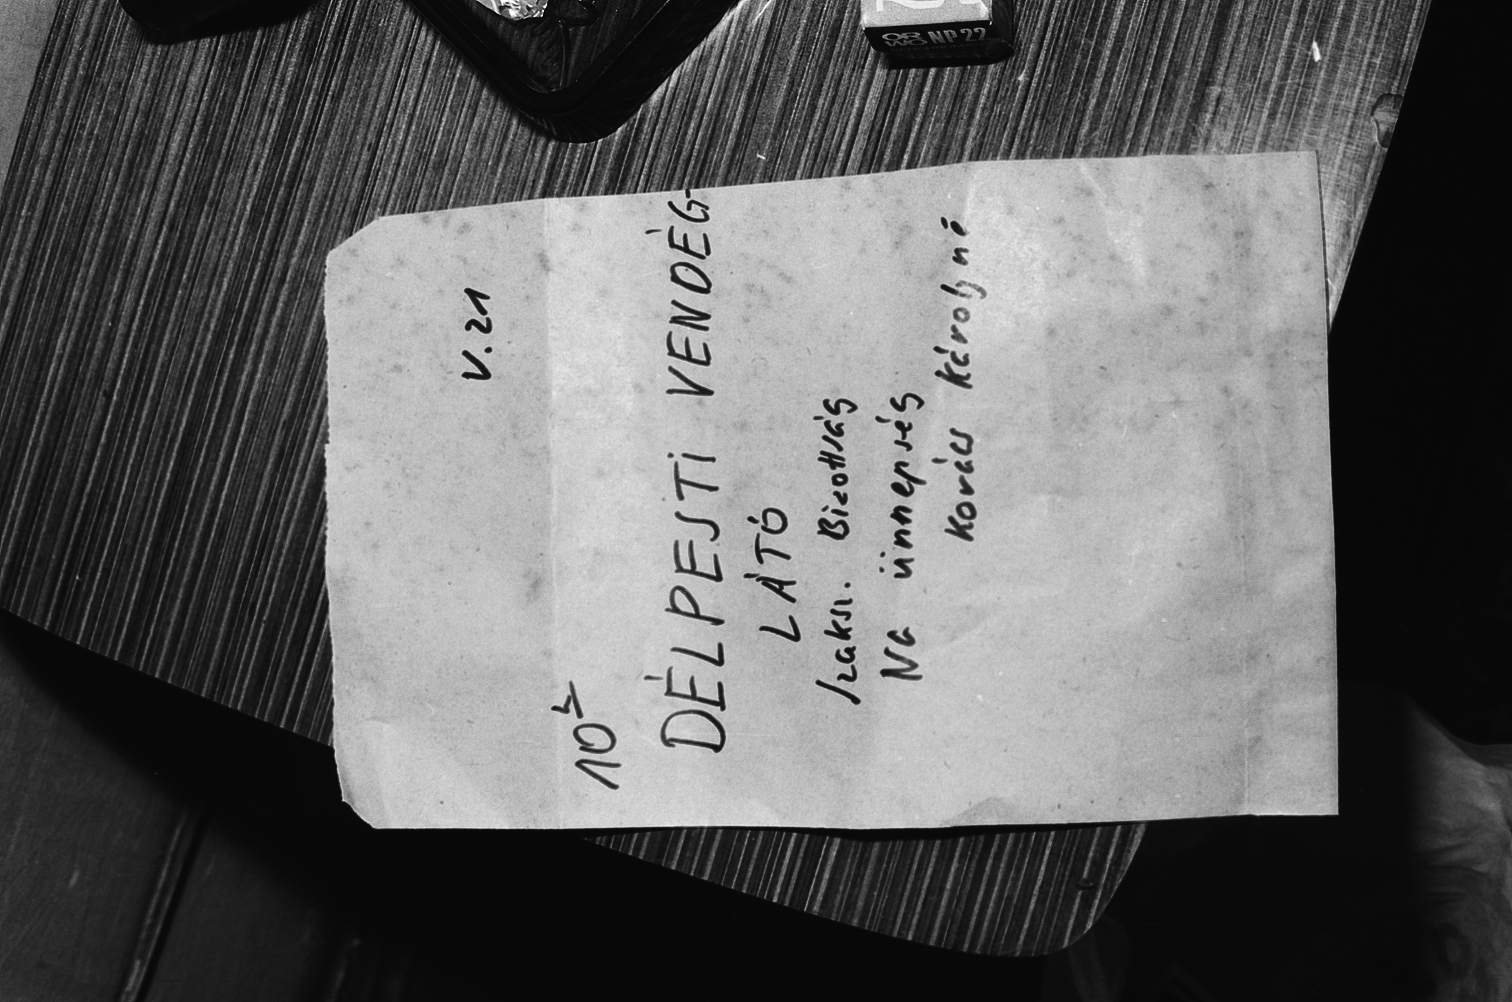 V.21
10²
DÉLPESTI VENDÉG-
LÁTÓ
szaksz. Bizottság
Nő ünnepség
Kovács Károlyné
ORWO NP 22